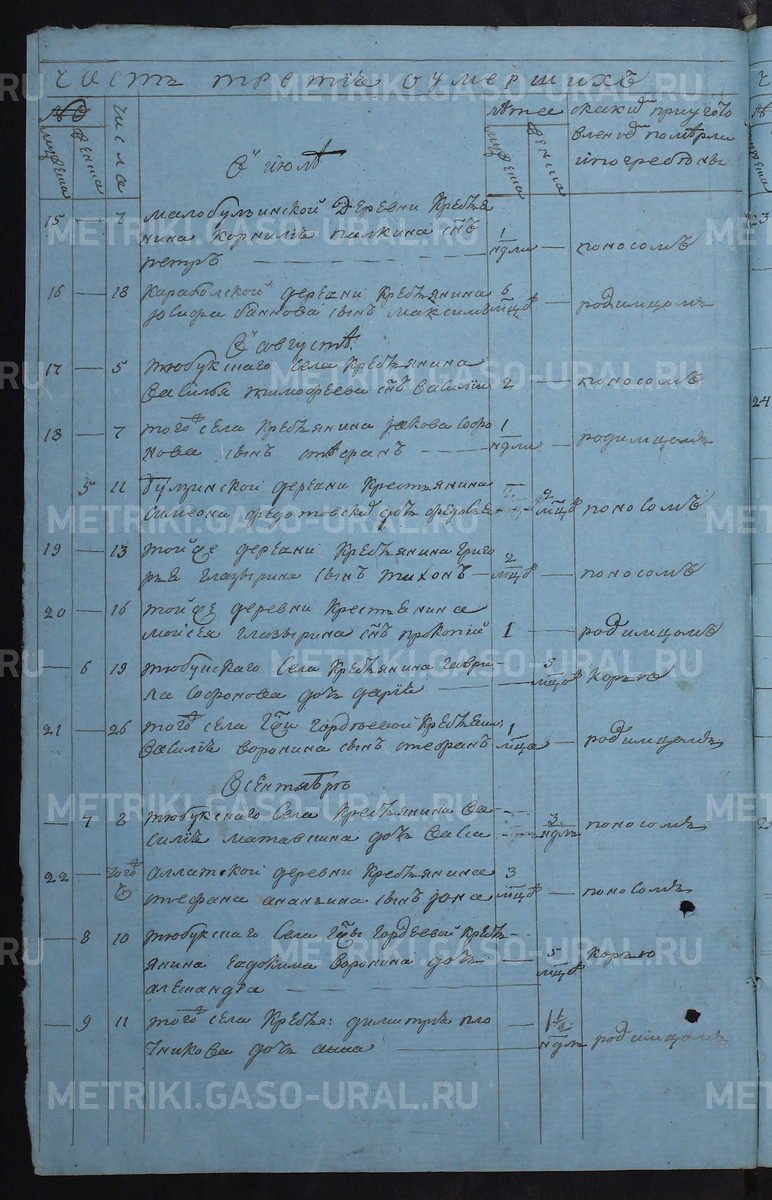 часть третія оумершихъ
№
мужеска
женска
числа
лѣта
мужеска
женска
какид приугото
вленіе помѣрли
ипогребены
въ июлѣ
15 — 7 малобулзинской деревни кресть
янина корнилія палкина снъ
петръ — 1 ндли — поносомъ
16 — 18 караболской деревни крестьянина 6
іосифа банкова сынъ максимъ мцъ — родимцомъ
въ августѣ
17 — 5 тюбукскаго села крестьянина
василья тимофеева снъ василіи 2 — поносомъ
18 — 7 того села крестьянина іакова софо 1
нова сынъ стефанъ — ндли — родимцомъ
5 11 булзинской деревни крестьянина 2
симеона дочь федосья мцъ поносомъ
19 — 13 тойже деревни крестьянина григо 2
рья глазырина сынъ тихонъ — мцъ — поносомъ
20 — 16 тойже деревни крестьянина
моисея глазырина снъ прокопій 1 — родимцомъ
— 6 19 тюбукскаго села крестьянина гаври — 5
ла софонова дочь дарія — мцъ корью
21 — 26 того села гжи гордѣевой крестьяни: 1
василія воронина сынъ стефанъ мца — родимцомъ
в сентябрѣ
— 7 2 тюбукскаго села крестьянина ва 3
силія дочь васса ндли поносомъ
22 — того аллатской деревни крестьянина 3
стефана ананьина сынъ іона мцъ — поносомъ
— 8 10 тюбукскаго села гжы гордѣевой кресть
янина евдокима воронина дочь — 5 корью
алеѯандра — мцъ
— 9 11 того села крестья: димитрія пло — 1 1/2
тникова дочь анна — ндли родимцомъ
23
24
METRIKI.GASO-URAL.RU